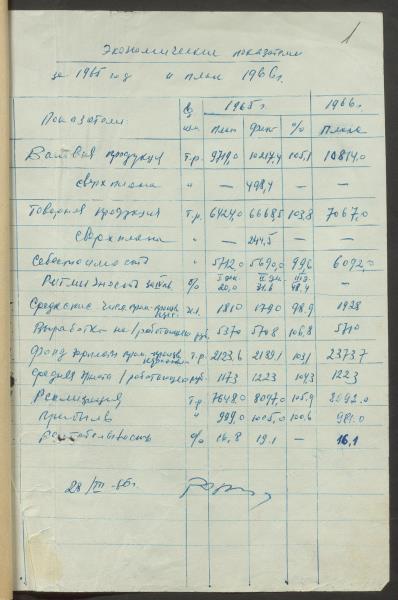 1
Экономические показатели
за 1965 год и план 1966 г.
Показатели Ед. изм. 1965 г. 1966 г.
план факт % план
Валовая продукция т.р. 9719,0 10217,4 105,1 10814,0
сверх плана " — 498,4 — —
Товарная продукция т.р. 6424,0 6668,5 103,8 7067,0
сверх плана " — 244,5 — —
Себестоимость " 5712,0 5690,0 99,6 6092,0
Ритмичность % I дек. 20,0 II дек. 31,6 III д. 48,4 —
1810 1790 98,9 1928
Выработка на 1 работающего руб. 5370 5708 106,8 5710
Фонд т.р. 2123,6 2189,1 103,1 2373,7
Средняя 1 работающего руб. 1173 1223 104,3 1223
Реализация т.р. 7648,0 8097,0 105,9 8092,0
Прибыль " 999,0 1005,0 100,6 981,0
Рентабельность % 16,8 19,1 — 16,1
28/III-66 г.